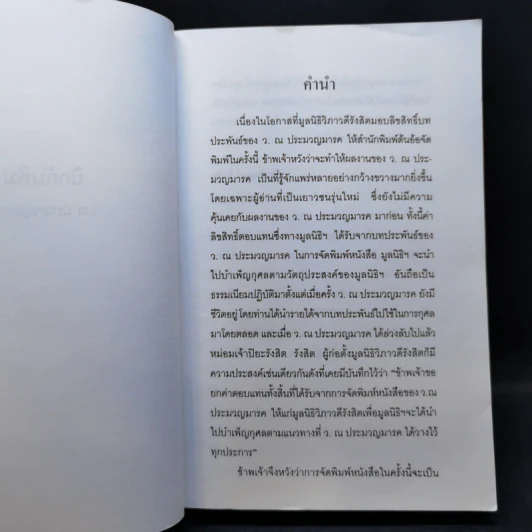 คำนำ
เนื่องในโอกาสที่มูลนิธิวิภาวดีรังสิตมอบลิขสิทธิ์บท
ประพันธ์ของ ว. ณ ประมวญมารค ให้สำนักพิมพ์ต้นอ้อจัด
พิมพ์ในครั้งนี้ ข้าพเจ้าหวังว่าจะทำให้ผลงานของ ว. ณ ประ-
มวญมารค เป็นที่รู้จักแพร่หลายอย่างกว้างขวางมากยิ่งขึ้น
โดยเฉพาะผู้อ่านที่เป็นเยาวชนรุ่นใหม่ ซึ่งยังไม่มีความ
คุ้นเคยกับผลงานของ ว. ณ ประมวญมารค มาก่อน ทั้งนี้ค่า
ลิขสิทธิ์ตอบแทนซึ่งทางมูลนิธิฯ ได้รับจากบทประพันธ์ของ
ว. ณ ประมวญมารค ในการจัดพิมพ์หนังสือ มูลนิธิฯ จะนำ
ไปบำเพ็ญกุศลตามวัตถุประสงค์ของมูลนิธิฯ อันถือเป็น
ธรรมเนียมปฏิบัติมาตั้งแต่เมื่อครั้ง ว. ณ ประมวญมารค ยังมี
ชีวิตอยู่ โดยท่านได้นำรายได้จากบทประพันธ์ไปใช้ในการกุศล
มาโดยตลอด และเมื่อ ว. ณ ประมวญมารค ได้ล่วงลับไปแล้ว
หม่อมเจ้าปิยะรังสิต รังสิต ผู้ก่อตั้งมูลนิธิวิภาวดีรังสิตก็มี
ความประสงค์เช่นเดียวกันดังที่เคยมีบันทึกไว้ว่า "ข้าพเจ้าขอ
ยกค่าตอบแทนทั้งสิ้นที่ได้รับจากการจัดพิมพ์หนังสือของ ว.ณ
ประมวญมารค ให้แก่มูลนิธิวิภาวดีรังสิตเพื่อมูลนิธิฯจะได้นำ
ไปบำเพ็ญกุศลตามแนวทางที่ ว. ณ ประมวญมารค ได้วางไว้
ทุกประการ"
ข้าพเจ้าจึงหวังว่าการจัดพิมพ์หนังสือในครั้งนี้จะเป็น